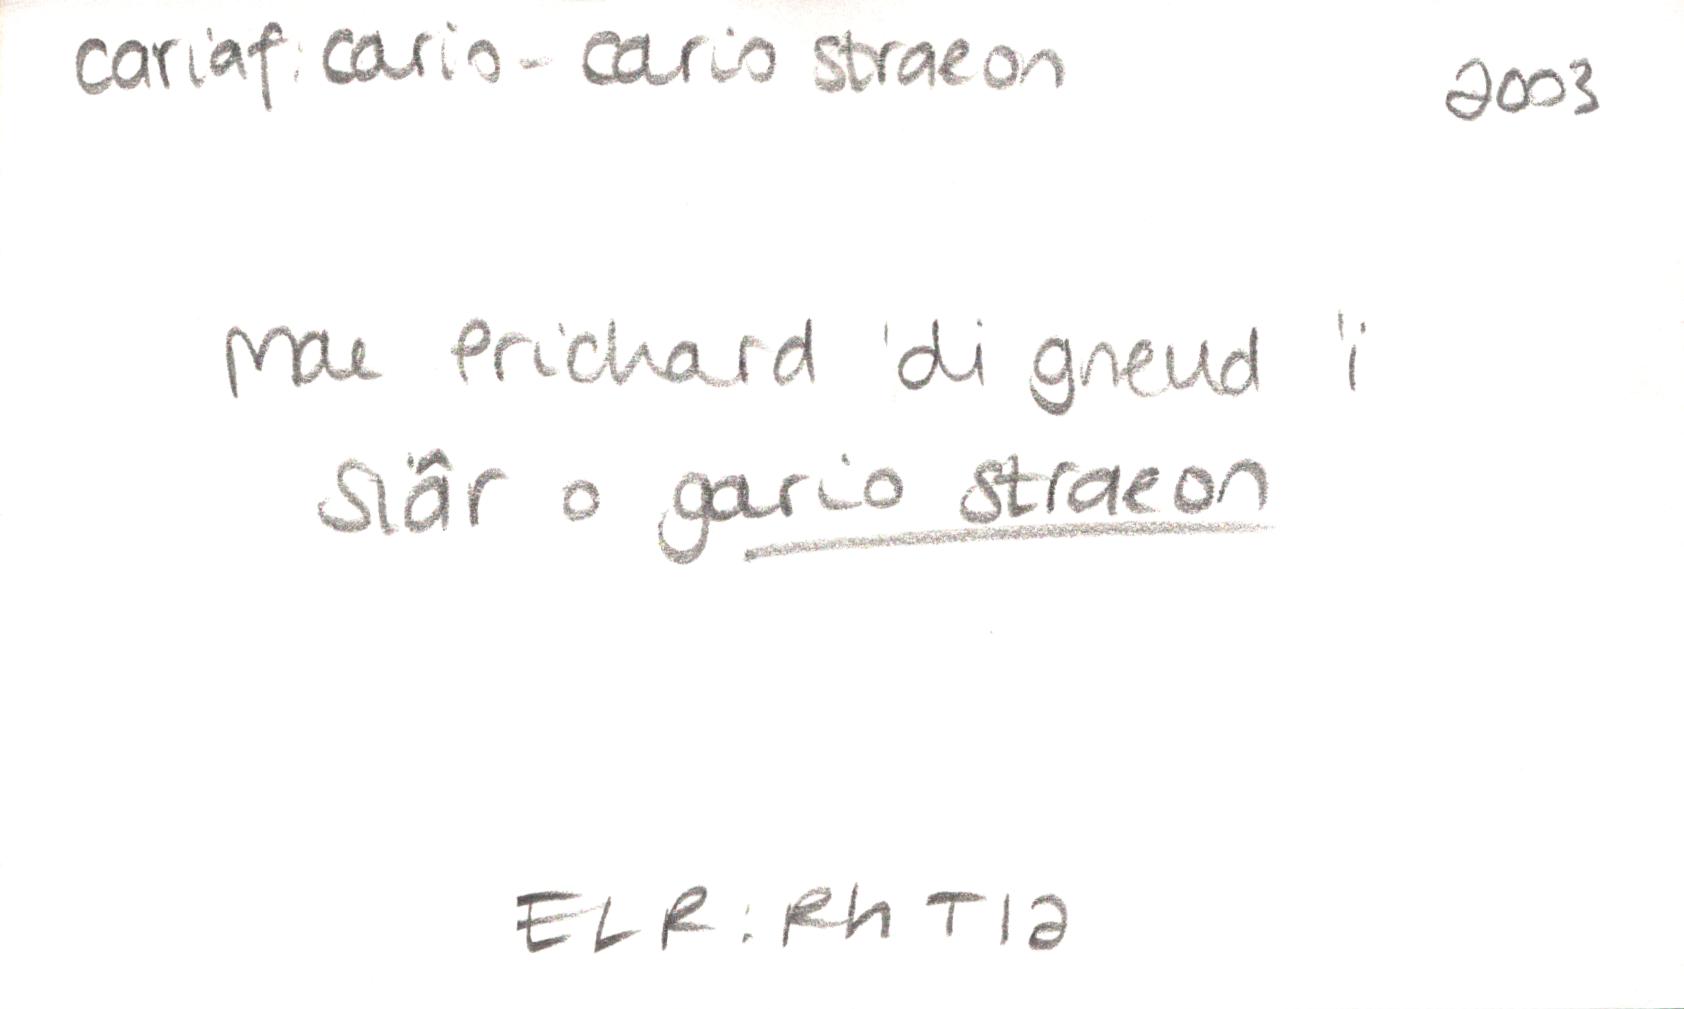 cariaf: cario - cario straeon 2003
Mae Prichard 'di gneud 'i
siâr o gario straeon
ELR: RhT 12